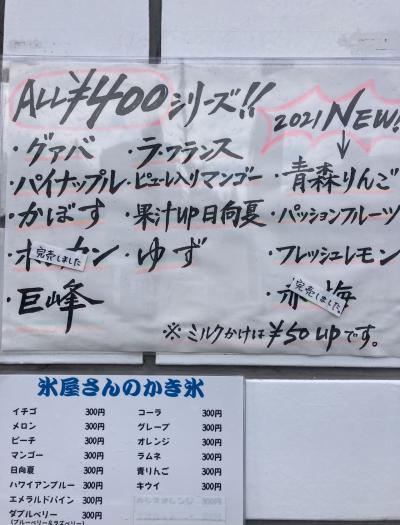 ALL ¥400シリーズ!!
・グァバ
・パイナップル
・かぼす
・ポンカン
完売しました
・巨峰
・ラ・フランス
・ピューレ入りマンゴー
・果汁UP日向夏
・ゆず
2021 NEW!
・青森りんご
・パッションフルーツ
・フレッシュレモン
完売しました
※ミルクかけは¥50UPです。
氷屋さんのかき氷
イチゴ 300円
メロン 300円
ピーチ 300円
マンゴー 300円
日向夏 300円
ハワイアンブルー 300円
エメラルドパイン 300円
ダブルベリー 300円
(ブルーベリー&ラズベリー)
コーラ 300円
グレープ 300円
オレンジ 300円
ラムネ 300円
青りんご 300円
キウイ 300円